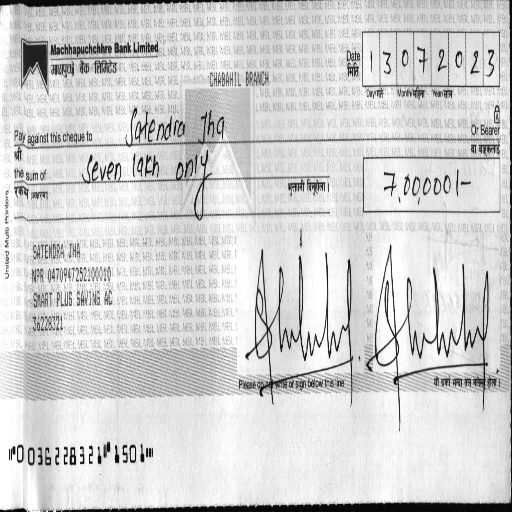 Machhapuchchhre Bank Limited
माछापुच्छ्रे बैंक लिमिटेड
CHABAHIL BRANCH
Date
मिति
1 3 0 7 2 0 2 3
Day गते Month महिना Year साल
Pay against this cheque to Satendra Jha
श्री
Or Bearer
वा वाहकलाई
the sum of Seven lakh only
रुकम (अक्षरमा)
भुक्तानी दिनुहोला।
7,00,000/-
United Multi Printers
SATENDRA JHA
NPR 0470947252100010
SMART PLUS SAVING AC
36228321
Please do not write or sign below this line
⑈0036228321⑈1501⑈